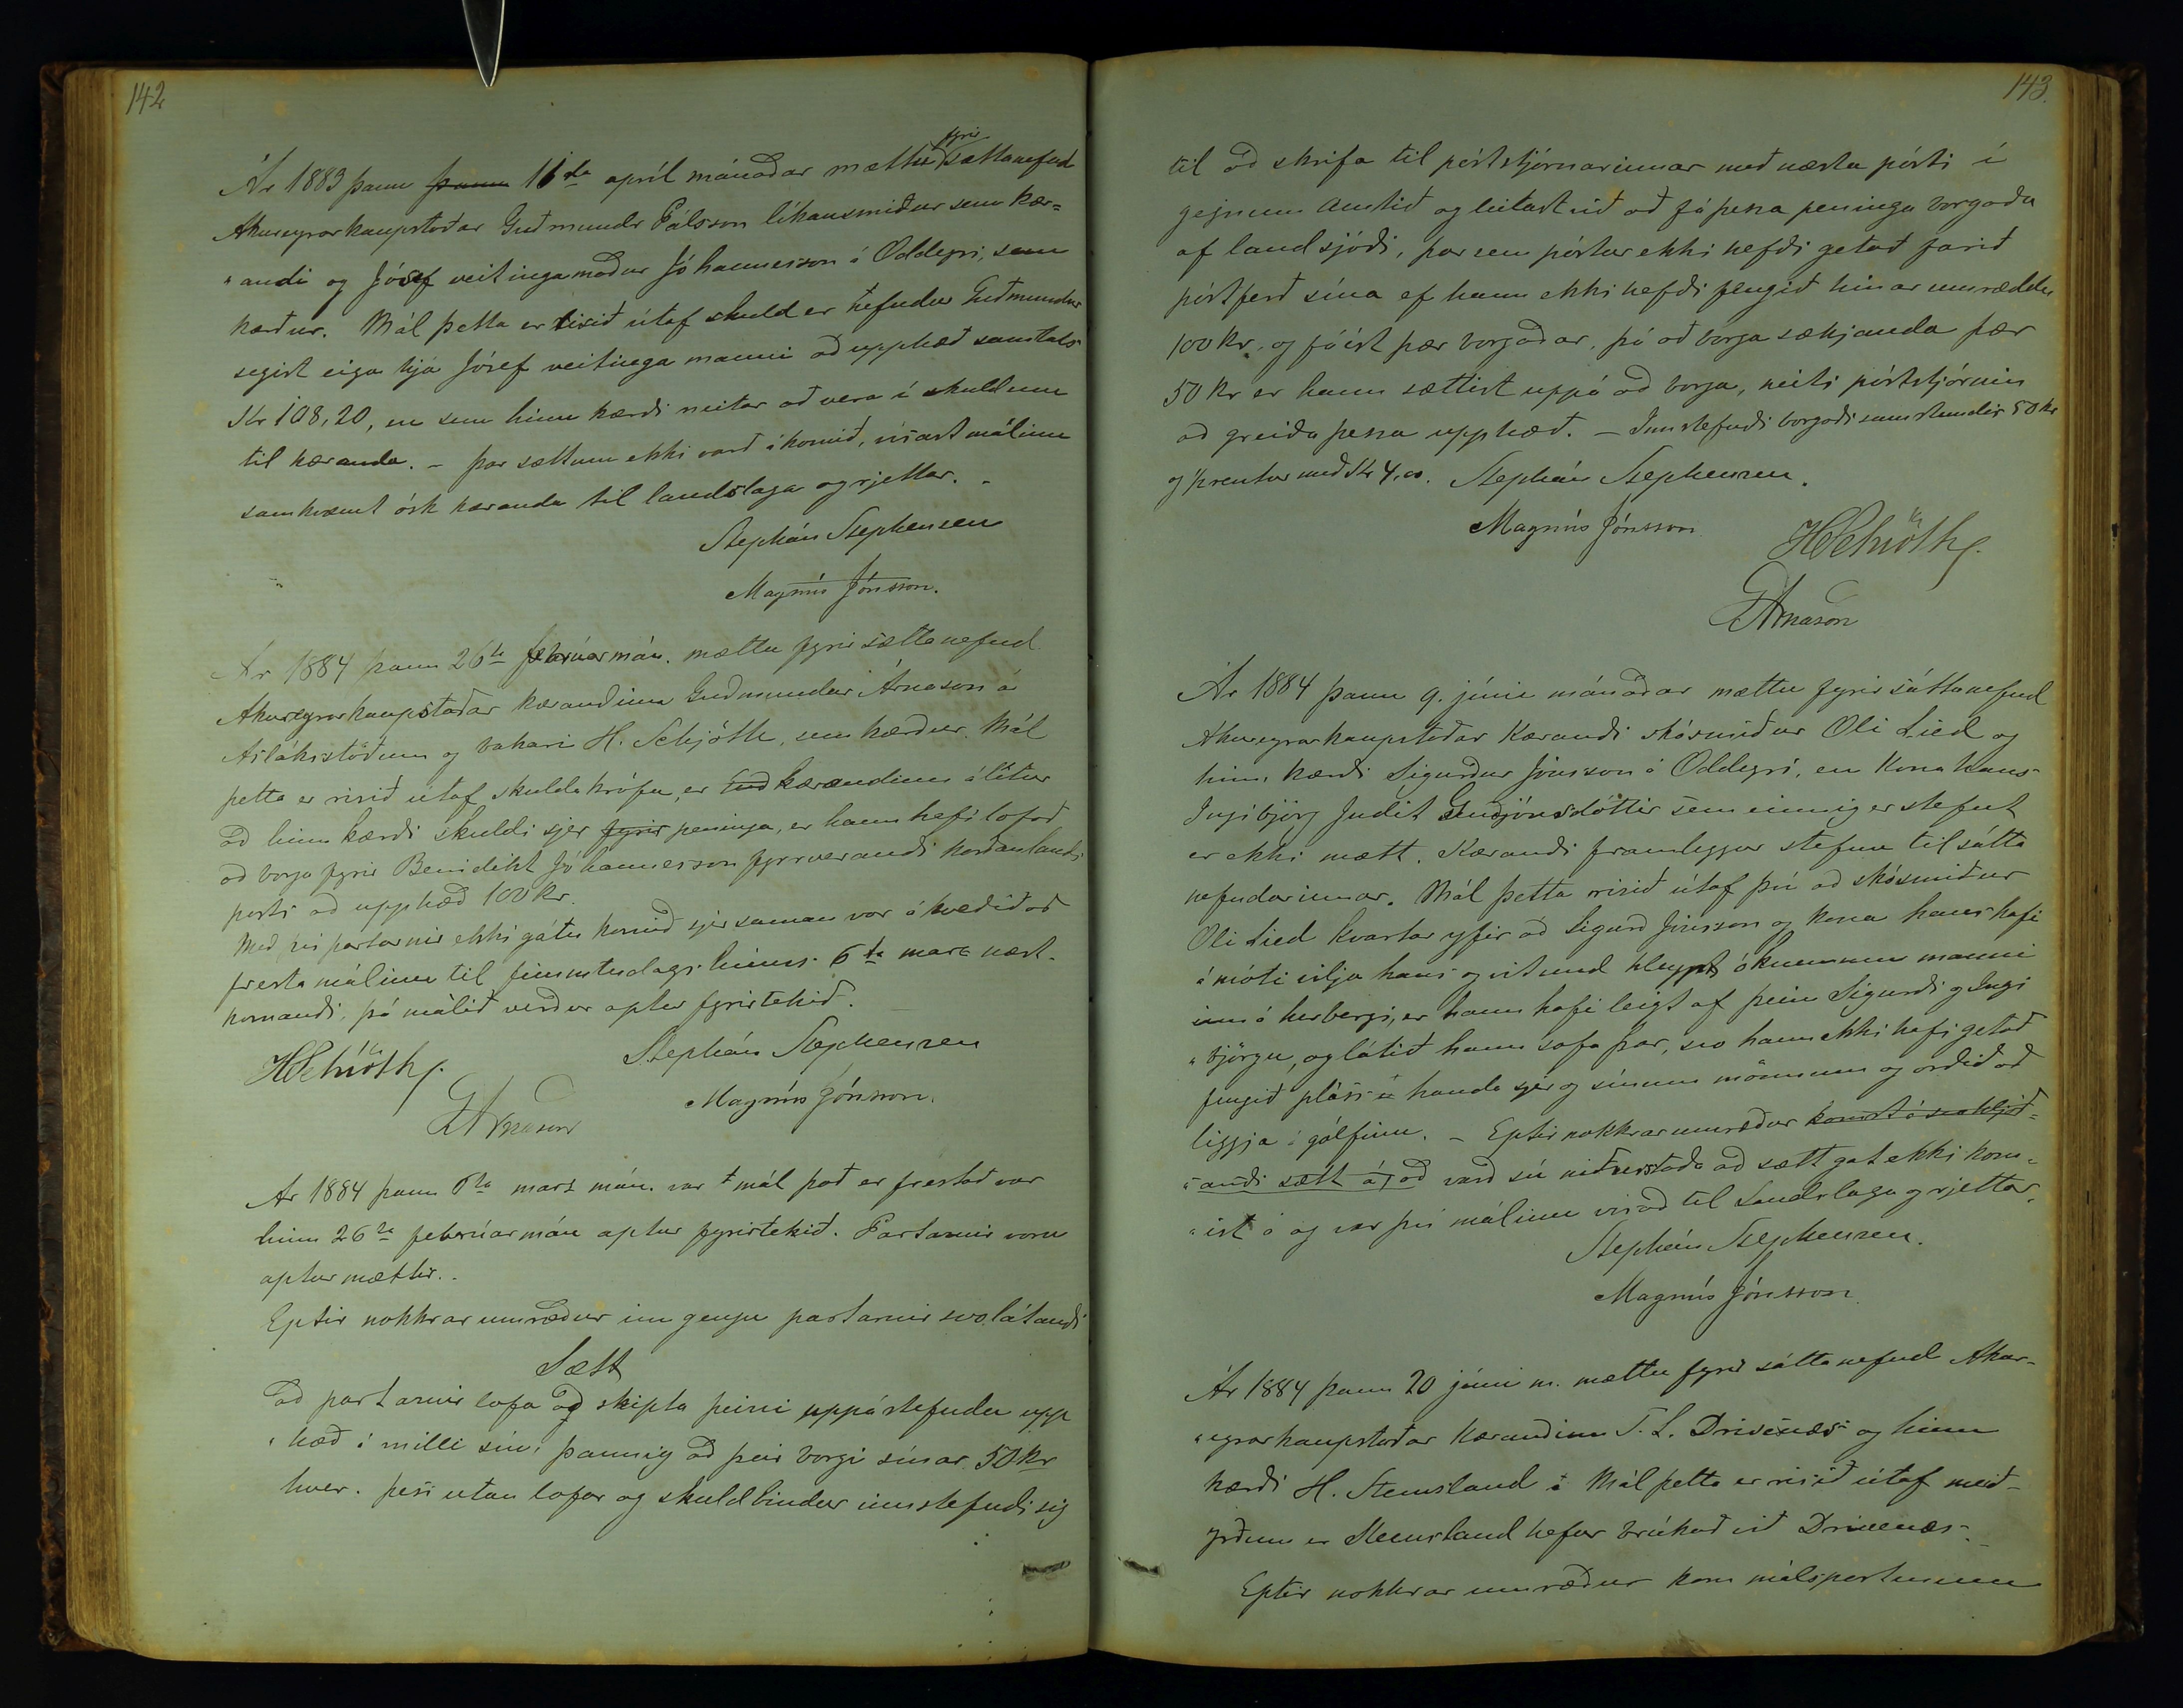 142
Ár 1883 þann þann 16da apríl mánaðar mættu fyrir sættanefnd
Akureyrarkaupstaðar Guðmundr Pálsson líkansmiður sem kær=
„andi og Jósef veitingamaður Jóhannesson á Oddeyri, sem
kærður. Mál þetta er risið útaf skuld er nefndur Guðmundur
segist eiga hjá Jósef veitingamanni að upphæð samtals
Kr 108,20, en sem hinn kærði neitar að vera í skuldum
til kæranda. – Þar sættum ekki varð ákomið, vísast málinu
samkvæmt ósk kæranda til landslaga og rjettar. „
Stephán Stephensen
Magnús Jónsson.
Ár 1884 þann 26ta febrúar mán. mættu fyrir sættanefnd
Akureyrarkaupstaðar kærandinn Guðmundur Árnason á
Asláksstöðum og bakari H. Schjöth, sem kærður. Mál
þetta er risið útaf skuldakröfu, er kærandinn álítur
að hinn kærði skuldi sjer fyrir peninga, er hann hefi lofað
að borga fyrir Benidikt Jóhannesson fyrrverandi norðanlands
posti að upphæð 100 kr.
Með því partarnir ekki gátu komið sjer saman var ákveðið að
fresta málinu til fimmtudags hinns 6ta mars næst-
komandi, þá málið verður aptur fyrirtekið.
HSchiöth Stephán Stephensen
GÁrnason Magnús Jónsson.
Ár 1884 þann 6ta mars mán. var mál það er frestað var
hinn 26ta febrúar mán aptur fyrirtekið. Partarnir voru
aptur mættir.
Eptir nokkrar umræður inn gengu partarnir svolátandi
Sætt
að partarnir lofa að skipta þeirri uppástefndu upp
„hæð á milli sín, þannig að þeir borgi sínar 50 kr
hver. Þess utan lofar og skuldbindur innstefndi sig
143.
til að skrifa til póststjórnarinnar með næsta pósti í
gegnum Amtið og leitast við að fá þessa peninga borgaða
af landsjóði, þar sem póstur ekki hefði getað farið
póstferð sína ef hann ekki hefði fengið hinar umræddu
100 kr. og fáist þær borgaðar, þá að borga sækjanda þær
50 kr er hann sættist uppá að borga, neiti póststjórnin
að greiða þessa upphæð. – Innstefndi borgaði samstundis 50 kr
og með Kr 4,00. Stephán Stephensen.
Magnús Jónsson HSchiöth
GÁrnason
Ár 1884 þann 9. júni mánaðar mættu fyrir sáttanefnd
Akureyrarkaupstaðar Kærandi skósmiður Oli Lied og
hinn kærði Sigurður Jónsson á Oddeyri, en kona hans
Ingibjörg Judit Guðjónsdóttir sem einnig er stefnt
er ekki mætt. Kærandi framleggur stefnu til sátta
nefndarinnar. Mál þetta risið útaf því að skósmiður
Oli Lied kvartar yfir að Sigurð Jónsson og kona hans hafi
á móti vilja hans og vitund hleypt ókunnum manni
inn á herbergi, er hann hafi leigt af þeim Sigurði og Ingi
„björgu, og látið hann sofa þar, svo hann ekki hafi getað
fengið pláss handa sjer og sínum mönnum og orðið að
liggja á gólfinu. – Eptir nokkrar umræður komst á svohljóð=
„andi sætt á, að varð sú niðurstaða að sætt gat ekki kom=
„ist á og var því málinu vísað til Landslaga og rjettar.
Stephán Stephensen.
Magnús Jónsson
Ár 1884 þann 20 júni m. mættu fyrir sáttanefnd Akur-
„eyrarkaupstaðar kærandinn T. L. Drivenæs og hinn
kærði H. Stensland Mál þetta er risið útaf meið-
yrðum er Stensland hefur brúkað við Drivenæs.
Eptir nokkrar umræður kom málspörtunum